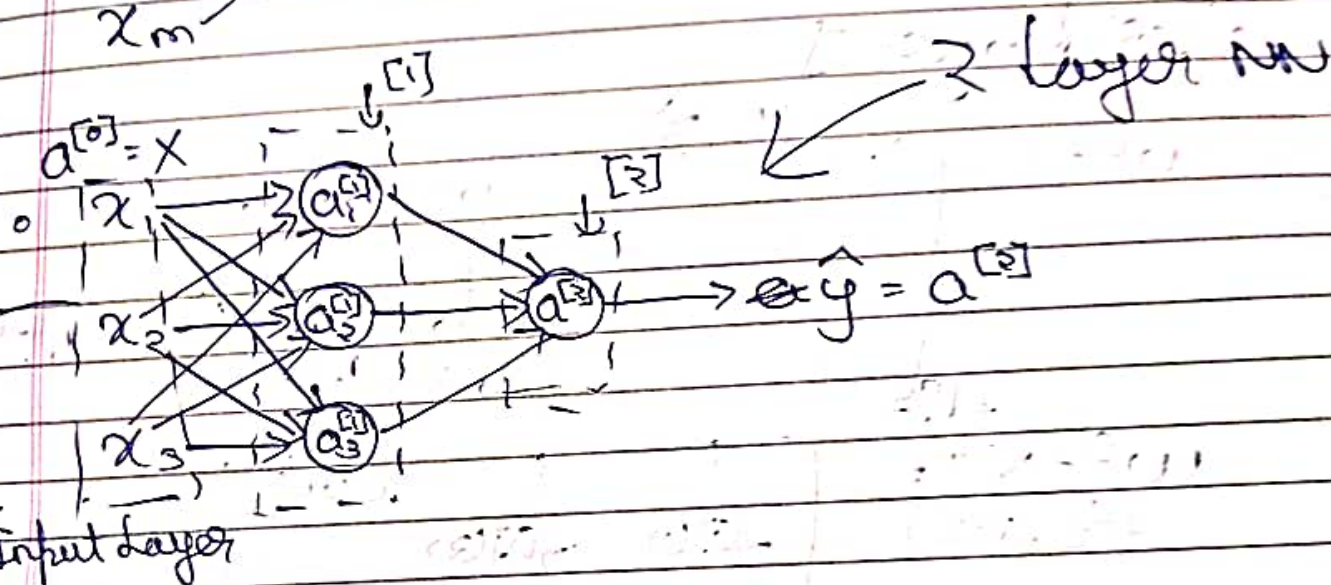 x_m
[1]
2 Layer NN
a^[0] = X
[2]
x_1
a_1^[1]
x_2
a_2^[1]
a^[2]
ŷ = a^[2]
x_3
a_3^[1]
Input Layer